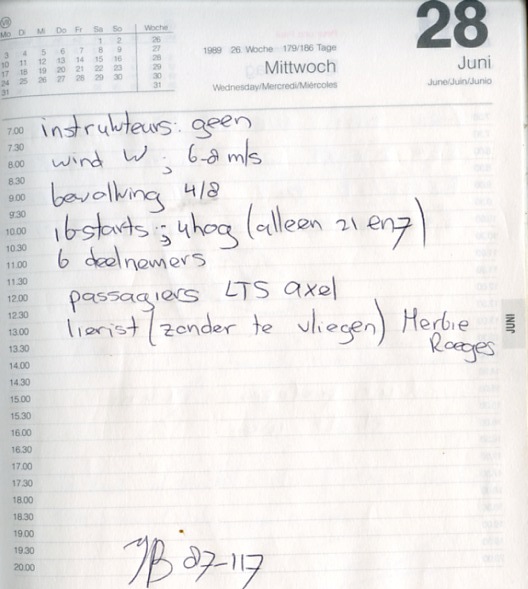 VII
Mo Di Mi Do Fr Sa So Woche
1 2 26
3 4 5 6 7 8 9 27
10 11 12 13 14 15 16 28
17 18 19 20 21 22 23 29
24 25 26 27 28 29 30 30
31 31
1989 26. Woche 179/186 Tage
Mittwoch
Wednesday/Mercredi/Miércoles
28
Juni
June/Juin/Junio
7.00 instrukteurs: geen
7.30
8.00 wind W ; 6-8 m/s
8.30
9.00 bewolking 4/8
9.30
10.00 16 starts ; 4 hog (alleen 21 en 7)
10.30
11.00 6 deelnemers
11.30
12.00 passagiers LTS axel
12.30
13.00 lierist (zonder te vliegen) Herbie
13.30 Raeges
14.00
14.30
15.00
15.30
16.00
16.30
17.00
17.30
18.00
18.30
19.00
19.30
20.00
87-117
JUNI